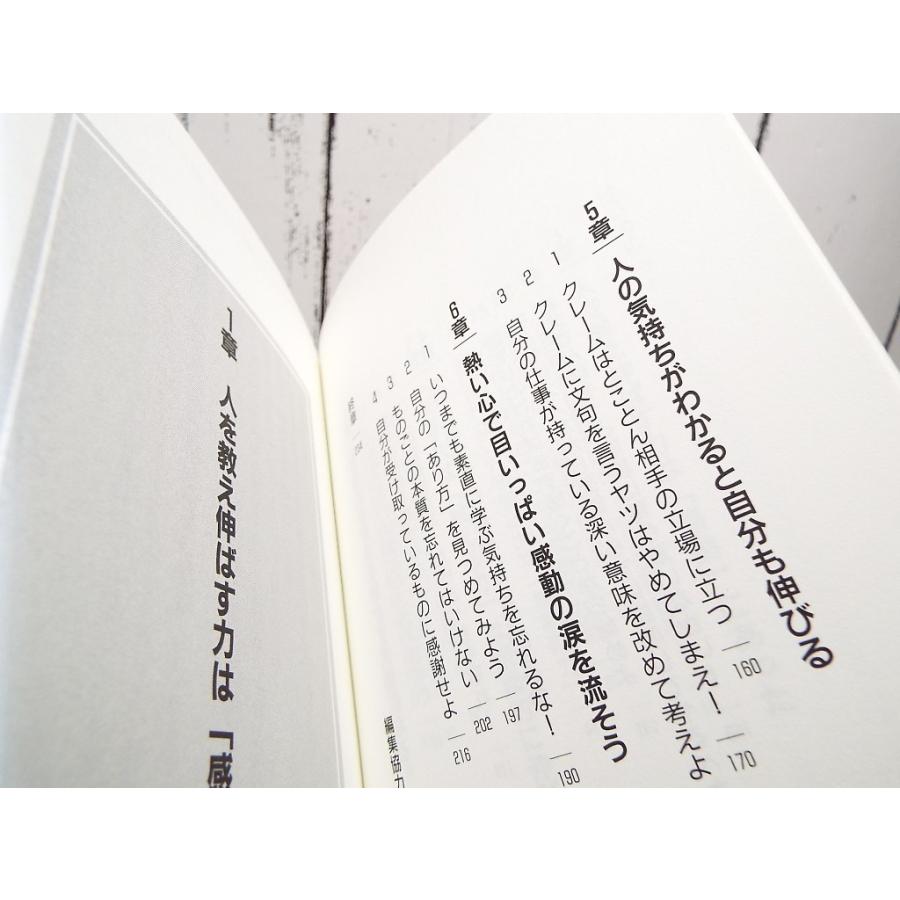 5章 人の気持ちがわかると自分も伸びる
1 クレームはとことん相手の立場に立つ 160
2 クレームに文句を言うヤツはやめてしまえ! 170
3 自分の仕事が持っている深い意味を改めて考えよ
6章 熱い心で目いっぱい感動の涙を流そう
1 いつまでも素直に学ぶ気持ちを忘れるな! 190
2 自分の「あり方」を見つめてみよう 197
3 ものごとの本質を忘れてはいけない 202
4 自分が受け取っているものに感謝せよ 216
終章 234
編集協力
1章 人を教え伸ばす力は「感